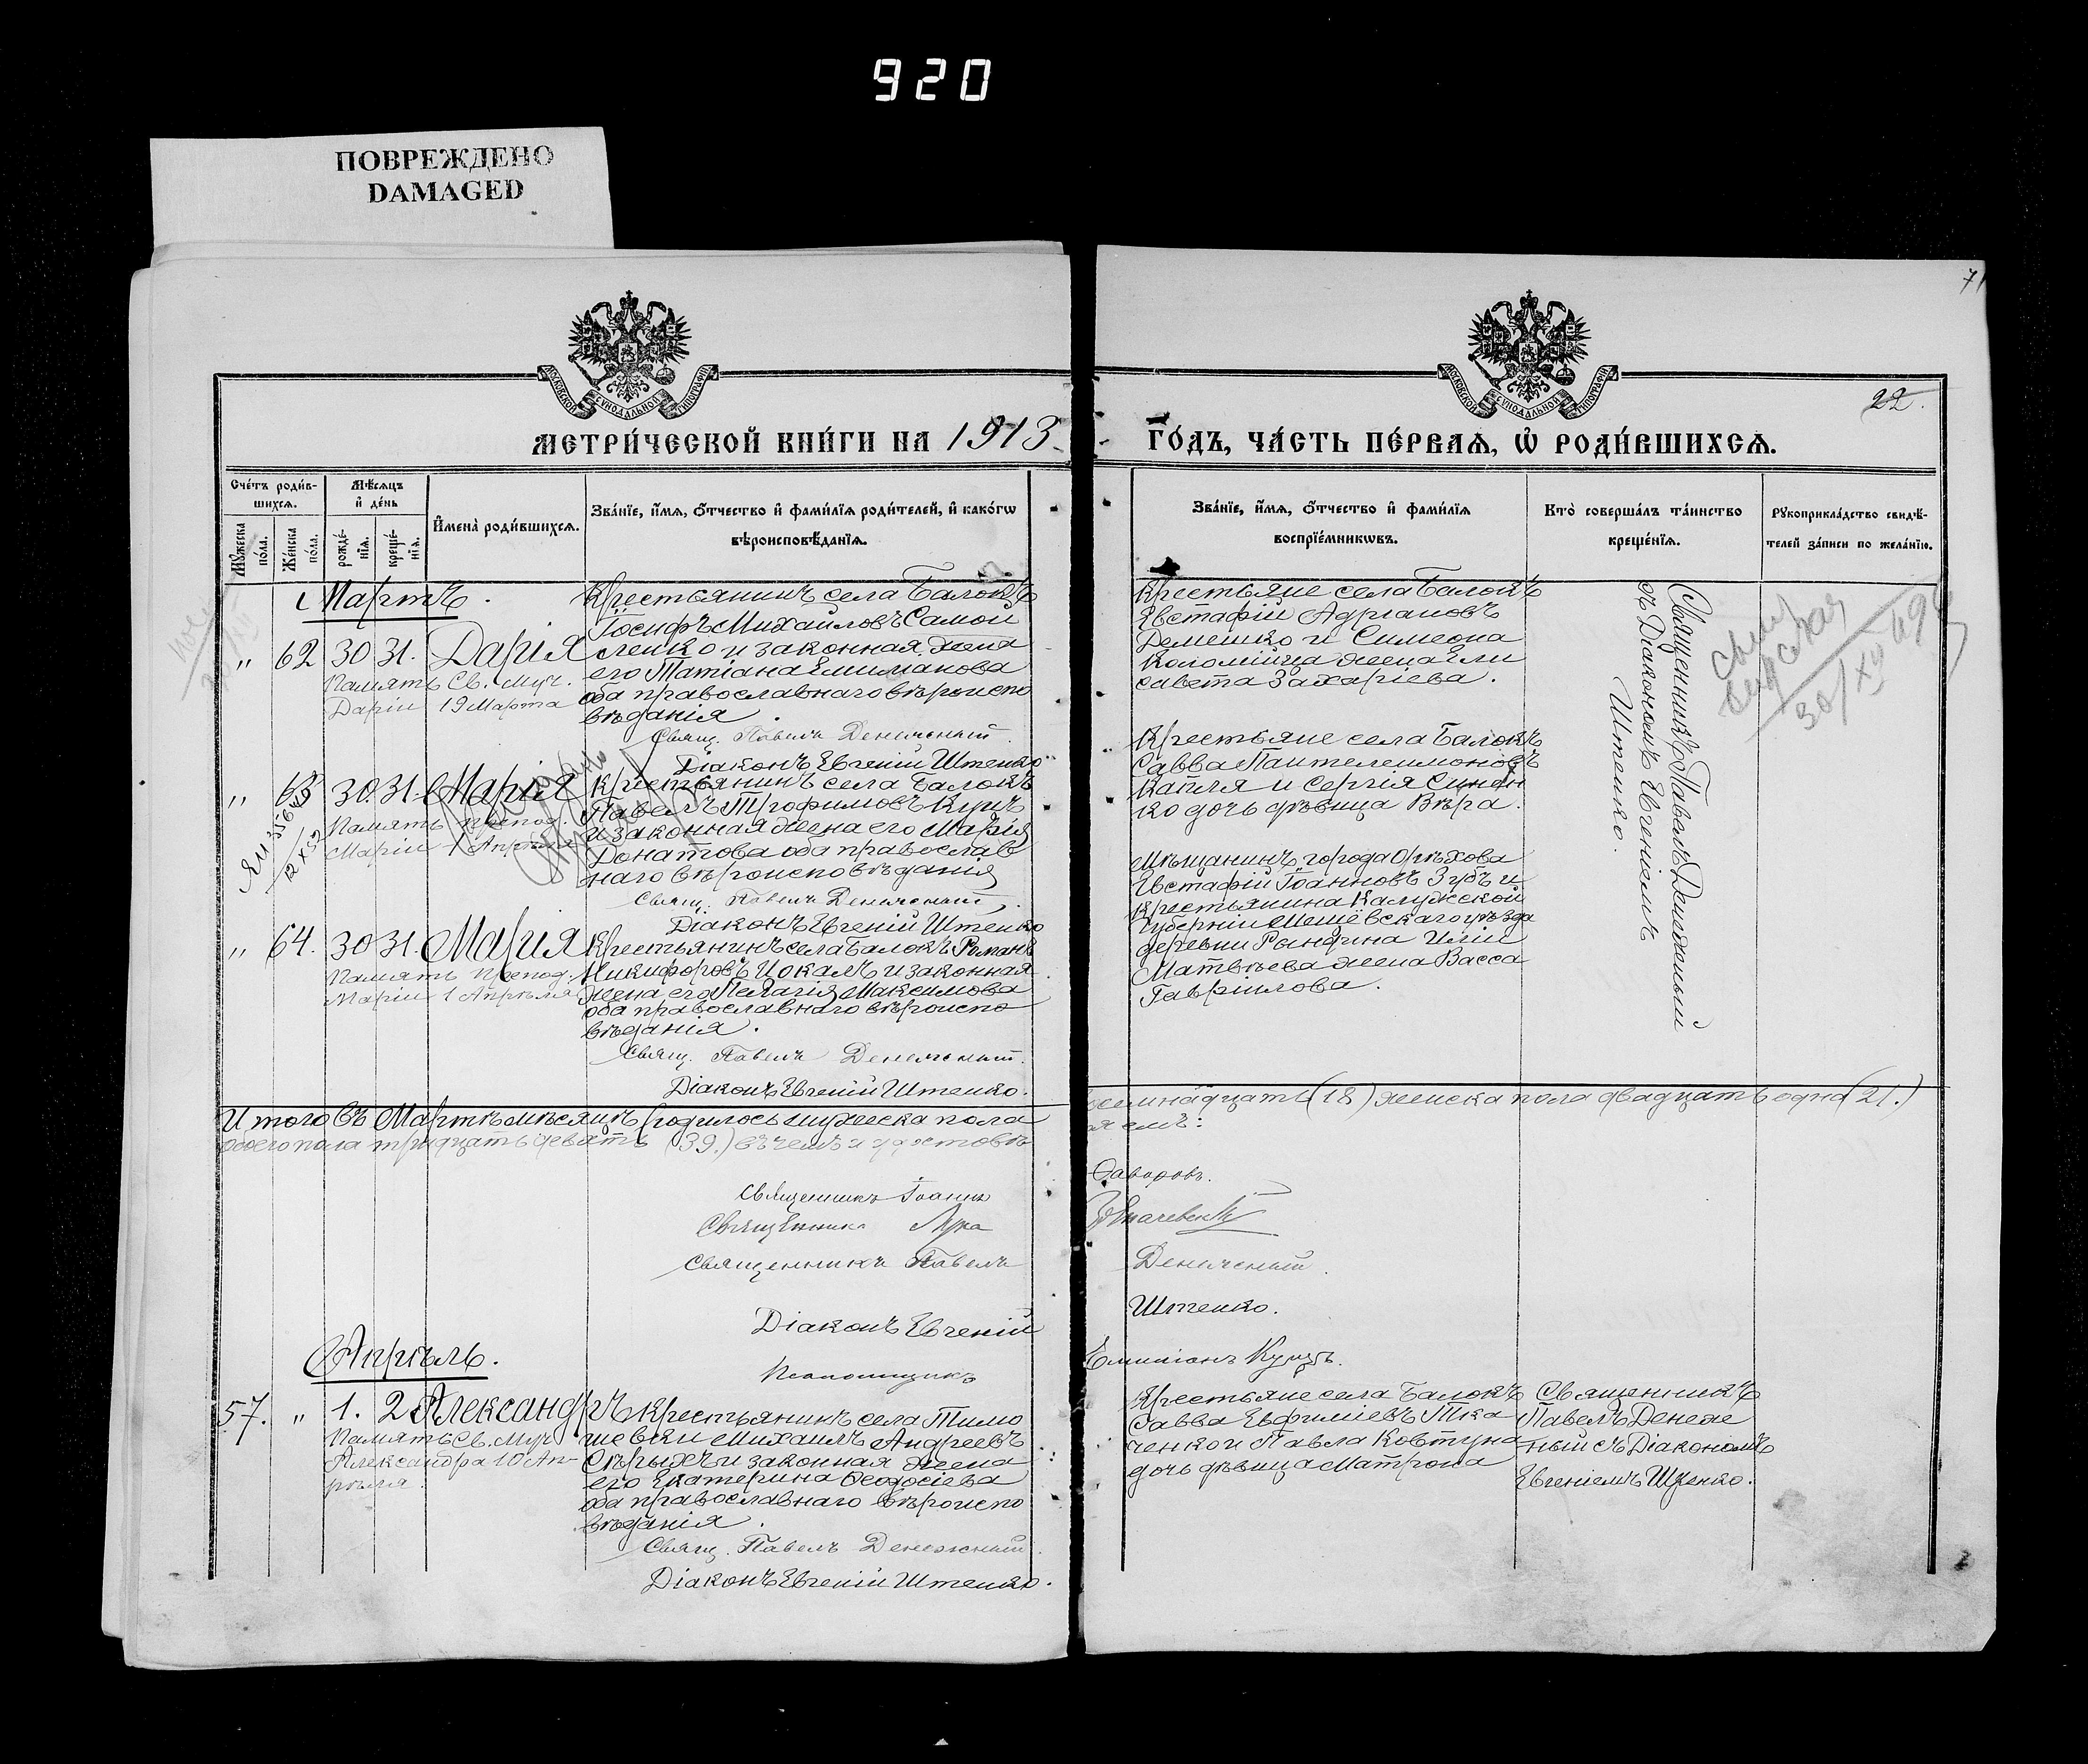 920
ПОВРЕЖДЕНО
DAMAGED
7
22.
МОСКОВСКОЙ СѴНОДАЛЬНОЙ ТИПОГРАФІИ
МОСКОВСКОЙ СѴНОДАЛЬНОЙ ТИПОГРАФІИ
МЕТРИ́ЧЕСКОЙ КНИ́ГИ НА 1913
ГО́ДЪ, ЧА́СТЬ ПЕ́РВАѦ, Ѽ РОДИ́ВШИХСѦ.
Сче́тъ роди́в-
шихсѧ.
Мꙋжеска по́ла.
Же́нска по́ла.
Мѣ́сѧцъ
и҆ де́нь
рожде́-
нїѧ.
креще́-
нїѧ.
И҆мена̀ роди́вшихсѧ.
Зва́нїе, и҆́мѧ, ѻ҆́тчество и҆ фами́лїѧ роди́телей, и҆ како́гѡ
вѣроисповѣ́данїѧ.
Зва́нїе, и҆́мѧ, ѻ҆́тчество и҆ фами́лїѧ
воспрїе́мникѡвъ.
Кто̀ соверша́лъ та́инство
креще́нїѧ.
Рꙋкоприкла́дство свидѣ́-
телей за́писи по жела́нїю.
Мартъ.
„ 62 30 31. Дарія
Память Св. Муч.
Даріи 19 Марта
Крестьянинъ села Балокъ
Іосифъ Михайловъ Самой
ленко и законная жена
его Татіана Емиліанова
оба православнаго вѣроиспо
вѣданія.
Свящ. Павелъ Денежный.
Діаконъ Евгеній Штенко
Крестьяне села Балокъ
Евстафій Адріановъ
Демешко и Симеона
Коломійца жена Ели
савета Захаріева.
Священникъ Павелъ Денежный
съ Діакономъ Евгеніемъ
Штенко.
30/XII 49
„ 63 30. 31. Марія
Память препод.
Маріи 1 Апрѣля
Крестьянинъ села Балокъ
Павелъ Трофимовъ Куцъ
и законная жена его Марія
Донатова оба православ
наго вѣроисповѣданія
Свящ. Павелъ Денежный.
Діаконъ Евгеній Штенко
Крестьяне села Балокъ
Савва Пантелеимоновъ
Капля и Сергія Синен
ко дочь дѣвица Вѣра.
„ 64. 30 31. Марія
Память препод.
Маріи 1 Апрѣля
Крестьянинъ села Балокъ Романъ
Никифоровъ Цокалъ и законная
жена его Пелагія Максимова
оба православнаго вѣроиспо
вѣданія.
Свящ. Павелъ Денежный.
Діаконъ Евгеній Штенко.
Мѣщанинъ города Орѣхова
Евстафій Іоанновъ Зубъ и
крестьянина Калужской
губерніи Мещёвскаго уѣзда
деревни Рындина Иліи
Матвѣева жена Васса
Гавріилова.
Итого въ Мартѣ мѣсяцѣ родилось мужеска пола
восемнадцать (18) женска пола двадцать одна (21.)
обоего пола тридцать девять (39.) въ чемъ и удостовѣ
ряемъ:
Священникъ Іоаннъ
Ѳаворовъ.
Священникъ Лука
Священникъ Павелъ
Денежный
Діаконъ Евгеній
Штенко.
Псаломщикъ
Емиліанъ Куцъ.
Апрѣль.
57. „ 1. 2 Александръ
Память Св. Муч
Александра 10 Ап-
рѣля.
Крестьянинъ села Тимо
шевки Михаилъ Андреевъ
Сѣрыхъ и законная жена
его Екатерина Ѳеодосіева
оба православнаго вѣроиспо
вѣданія.
Свящ. Павелъ Денежный.
Діаконъ Евгеній Штенко.
Крестьяне села Балокъ
Савва Евфиміевъ Тка
ченко и Павла Ковтуна
дочь дѣвица Матрона
Священникъ
Павелъ Денеж
ный съ Діакономъ
Евгеніемъ Штенко.